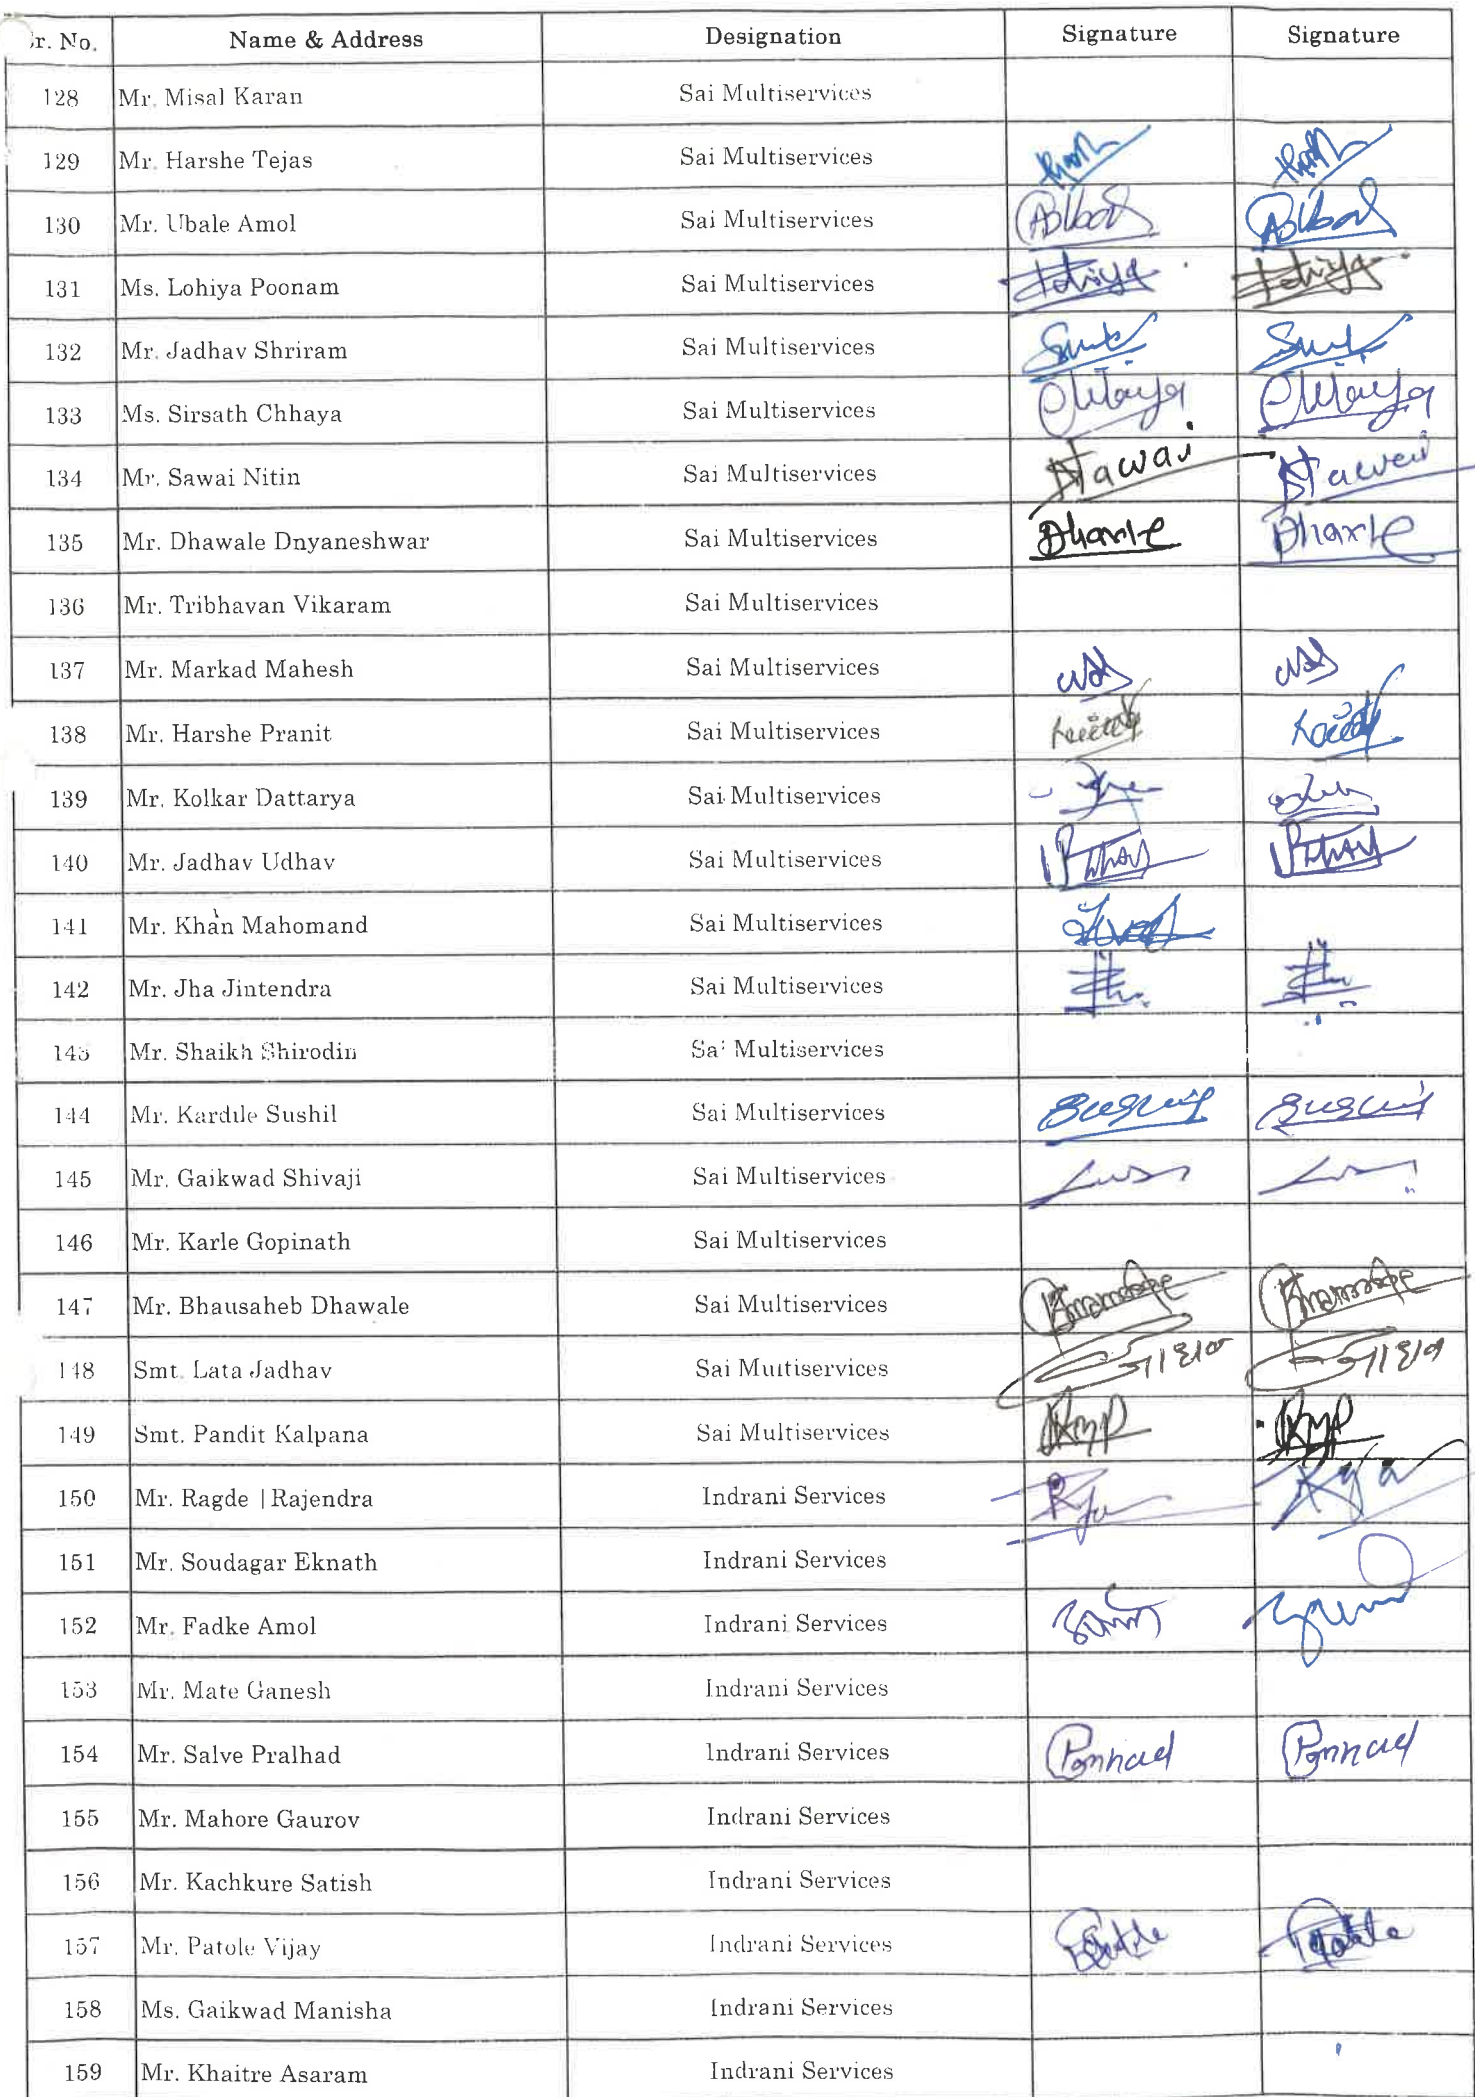 r. No. Name & Address Designation Signature Signature
128 Mr. Misal Karan Sai Multiservices
129 Mr. Harshe Tejas Sai Multiservices
130 Mr. Ubale Amol Sai Multiservices
131 Ms. Lohiya Poonam Sai Multiservices
132 Mr. Jadhav Shriram Sai Multiservices
133 Ms. Sirsath Chhaya Sai Multiservices
134 Mr. Sawai Nitin Sai Multiservices
135 Mr. Dhawale Dnyaneshwar Sai Multiservices
136 Mr. Tribhavan Vikaram Sai Multiservices
137 Mr. Markad Mahesh Sai Multiservices
138 Mr. Harshe Pranit Sai Multiservices
139 Mr. Kolkar Dattarya Sai Multiservices
140 Mr. Jadhav Udhav Sai Multiservices
141 Mr. Khan Mahomand Sai Multiservices
142 Mr. Jha Jintendra Sai Multiservices
143 Mr. Shaikh Shirodin Sai Multiservices
144 Mr. Kardile Sushil Sai Multiservices
145 Mr. Gaikwad Shivaji Sai Multiservices
146 Mr. Karle Gopinath Sai Multiservices
147 Mr. Bhausaheb Dhawale Sai Multiservices
148 Smt. Lata Jadhav Sai Multiservices
149 Smt. Pandit Kalpana Sai Multiservices
150 Mr. Ragde |Rajendra Indrani Services
151 Mr. Soudagar Eknath Indrani Services
152 Mr. Fadke Amol Indrani Services
153 Mr. Mate Ganesh Indrani Services
154 Mr. Salve Pralhad Indrani Services
155 Mr. Mahore Gaurov Indrani Services
156 Mr. Kachkure Satish Indrani Services
157 Mr. Patole Vijay Indrani Services
158 Ms. Gaikwad Manisha Indrani Services
159 Mr. Khaitre Asaram Indrani Services